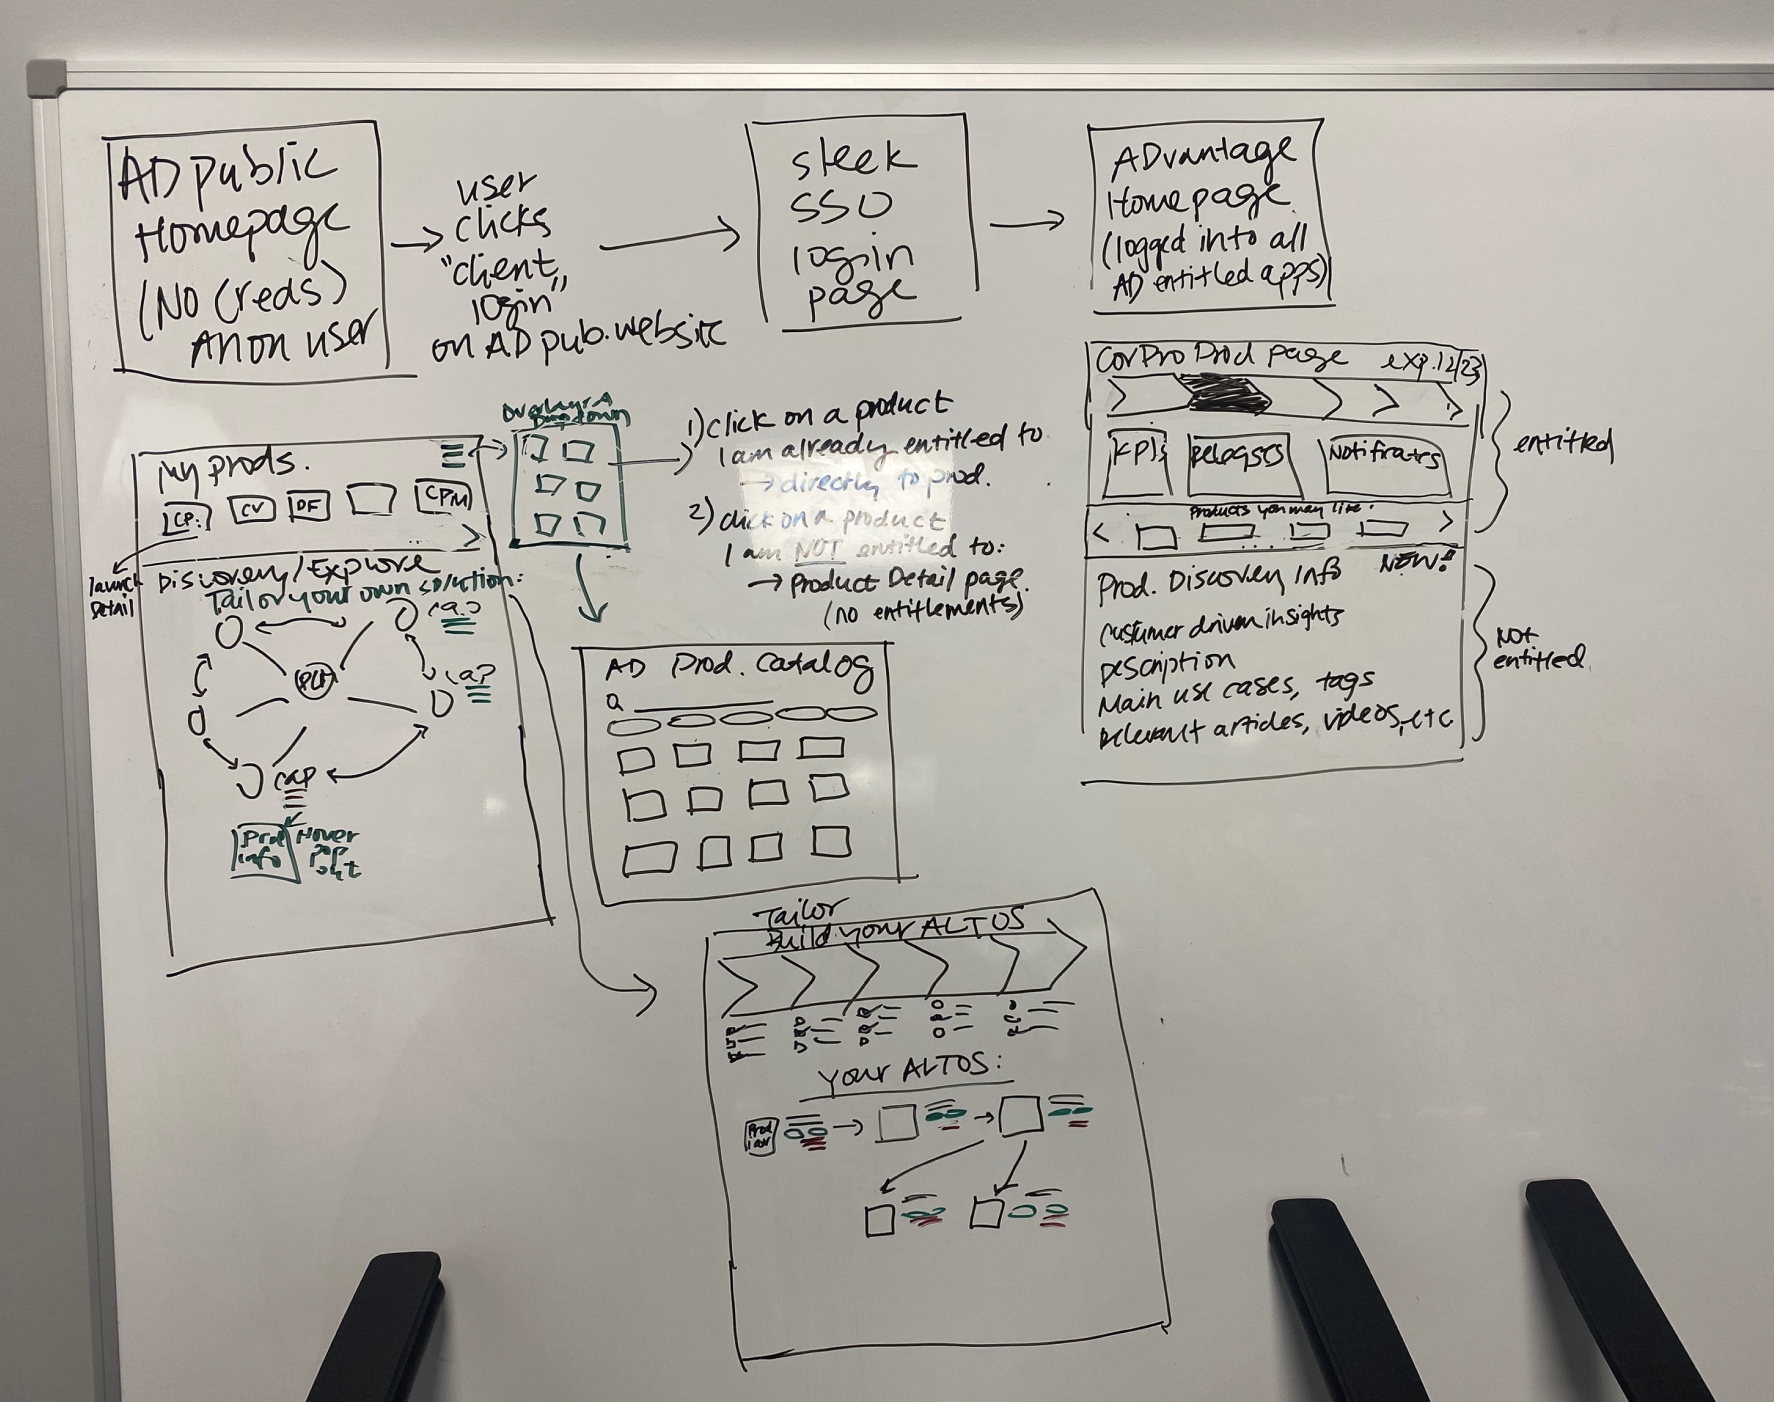 AD public
Homepage
(No Creds)
Anon user
user
clicks
"client
login"
on AD pub. website
sleek
SSO
login
page
ADvantage
Homepage
(logged into all
AD entitled apps)
My prods.
CP:
CV
DF
CPM
launch
Detail
Discovery/Explore
Tailor your own solution:
cap
cap
PLF
cap
Prod
info
Hover
pop
out
Overlay
Dropdown
1) click on a product
I am already entitled to
→ directly to prod.
2) click on a product
I am NOT entitled to:
→ Product Detail page.
(no entitlements)
CorPro Prod page exp. 12/23
KPIs
Releases
Notificatns
Products you may like.
NEW!!
entitled
Prod. Discovery Info
Customer driven insights
Description
Main use cases, tags
Relevant articles, videos, etc
NOT
entitled
AD Prod. Catalog
Tailor
Build your ALTOS
Your ALTOS:
Prod